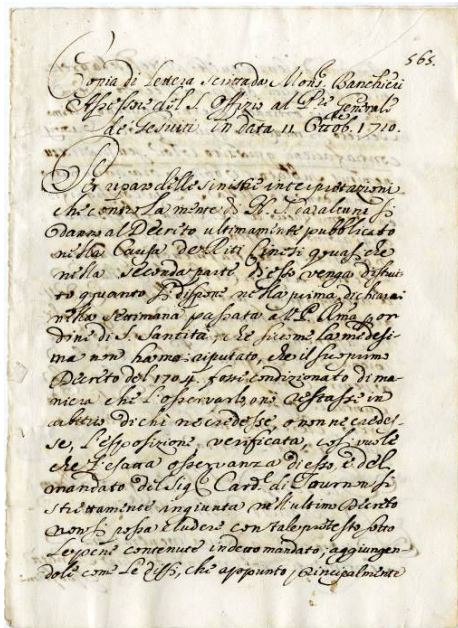 565.
Copia di Lettera scritta da Mons. Banchieri
Assessore del S. Offizio al Pre Generale
de Gesuiti in data 11 Ottob. 1710.
Per riparo delle sinistre interpretazioni
che contro la mente di N. S. da alcuni si
danno al Decreto ultimamente pubblicato
nella Causa de Riti Cinesi quasi che
nella seconda parte di esso venga distrut
to quanto si dispone nella prima, dichiarai
nella settimana passata a V. P. Rma per or
dine di S. Santità, che sicome la medesi
ma non ha mai riputato, che il suo primo
Decreto del 1704. fosse condizionato di ma
niera che l'osservarlo, o no restasse in
arbitrio di chi ne credesse, o non ne credes
se, l'esposizione verificata, così vuole
che l'esatta osservanza di esso, e del
mandato del Sig. Card. di Tournon sì
strettamente ingiunta nell'ultimo Decreto
non si possa eludere con tale pretesto sotto
le pene contenute in detto mandato; aggiungen
doli come le dissi, che appunto principalmente